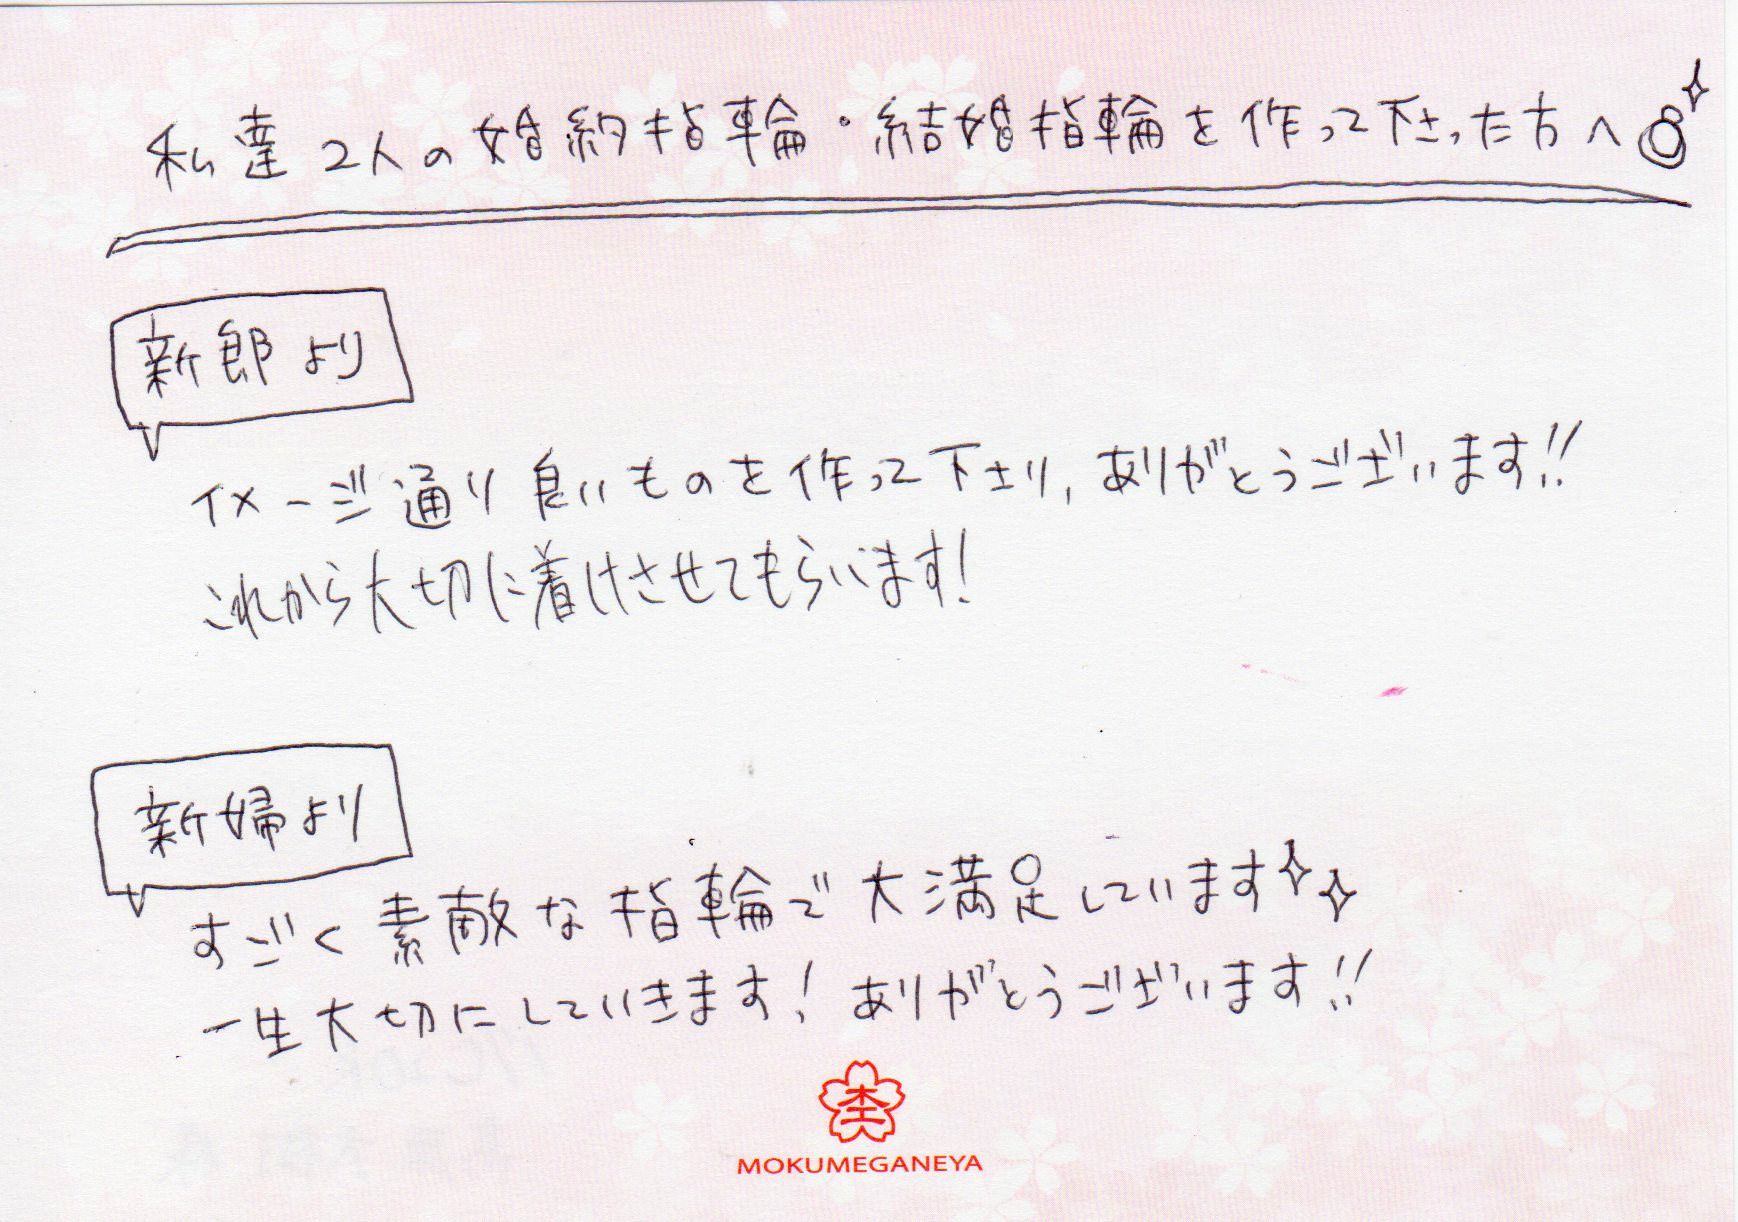 私達2人の婚約指輪・結婚指輪を作って下さった方へ
新郎より
イメージ通り良いものを作って下さり、ありがとうございます!!
これから大切に着けさせてもらいます!
新婦より
すごく素敵な指輪で大満足しています
一生大切にしていきます! ありがとうございます!!
杢
MOKUMEGANEYA